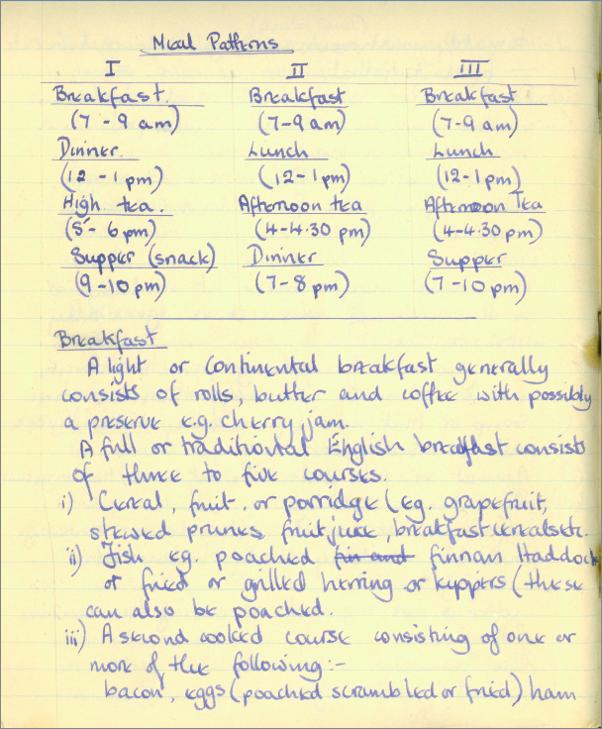 Meal Patterns
I II III
Breakfast. Breakfast Breakfast
(7 - 9 am) (7-9 am) (7-9 am)
Dinner. Lunch Lunch
(12 - 1 pm) (12-1 pm) (12-1 pm)
High tea. Afternoon tea Afternoon Tea
(5 - 6 pm) (4-4.30 pm) (4-4.30 pm)
Supper (snack) Dinner Supper
(9-10 pm) (7-8 pm) (7-10 pm)
Breakfast
A light or continental breakfast generally
consists of rolls, butter and coffee with possibly
a preserve e.g. cherry jam.
A full or traditional English breakfast consists
of three to five courses.
i) Cereal, fruit, or porridge (eg. grapefruit,
stewed prunes, fruit juice, breakfast cereals etc.
ii) Fish eg. poached fin and finnan Haddock
or fried or grilled herring or kuppers (these
can also be poached.
iii) A second cooked course consisting of one or
more of the following:-
bacon, eggs (poached scrambled or fried) ham